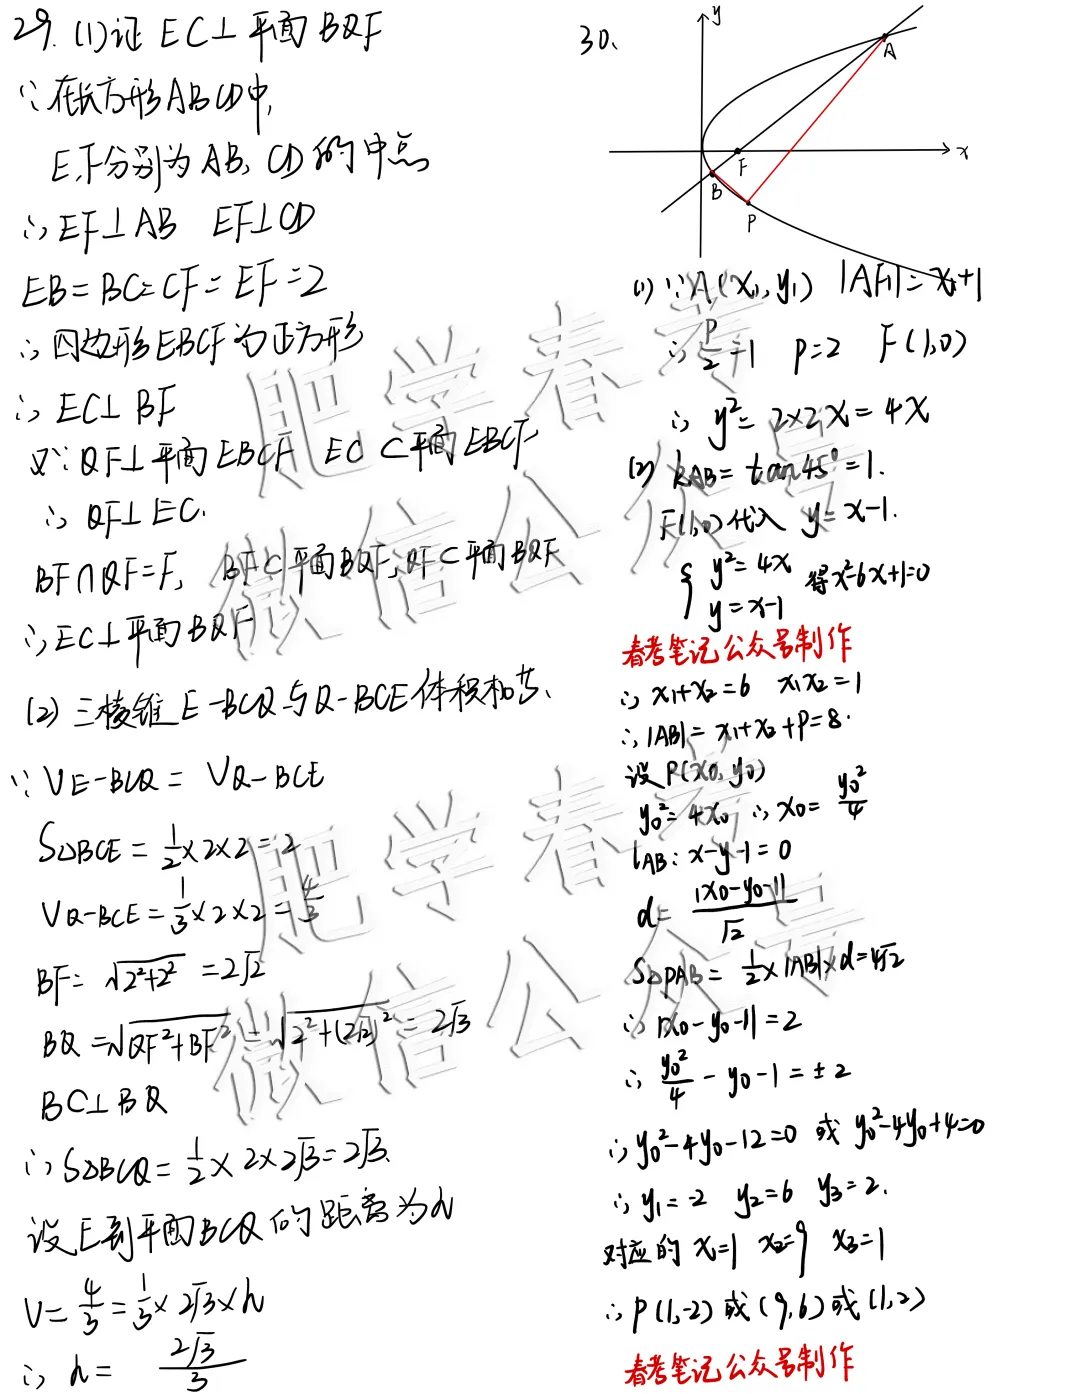 29. (1)证 EC⊥平面BQF
∵在长方形ABCD中,
E,F分别为AB, CD的中点
∴EF⊥AB EF⊥CD
EB=BC=CF=EF=2
∴四边形EBCF为正方形
∴EC⊥BF
又∵QF⊥平面EBCF EC⊂平面EBCF
∴QF⊥EC.
BF∩QF=F, BF⊂平面BQF, QF⊂平面BQF
∴EC⊥平面BQF
(2) 三棱锥E-BCQ与Q-BCE体积相等.
∵VE-BCQ=VQ-BCE
S△BCE=1/2×2×2=2
VQ-BCE=1/3×2×2=4/3
BF=√(2²+2²)=2√2
BQ=√(QF²+BF²)=√(2²+(2√2)²)=2√3
BC⊥BQ
∴S△BCQ=1/2×2×2√3=2√3.
设E到平面BCQ的距离为h
V=4/3=1/3×2√3×h
∴h=2√3/3
30.
y
A
x
F
B
P
(1)∵A(x₁,y₁) |AF|=x₁+1
∴p/2=1 p=2 F(1,0)
∴y²=2×2x=4x
(2) kAB=tan45°=1.
F(1,0)代入 y=x-1.
{ y²=4x
y=x-1 得x²-6x+1=0
春考笔记公众号制作
∴x₁+x₂=6 x₁x₂=1
∴|AB|=x₁+x₂+p=8.
设P(x₀,y₀)
y₀²=4x₀ ∴x₀=y₀²/4
lAB: x-y-1=0
d=|x₀-y₀-1|/√2
S△PAB=1/2×|AB|×d=4√2
∴|x₀-y₀-1|=2
∴y₀²/4-y₀-1=±2
∴y₀²-4y₀-12=0 或 y₀²-4y₀+4=0
∴y₁=-2 y₂=6 y₃=2.
对应的 x₁=1 x₂=9 x₃=1
∴P(1,-2)或(9,6)或(1,2)
春考笔记公众号制作
肥学春考
微信公众号
肥学春考
微信公众号